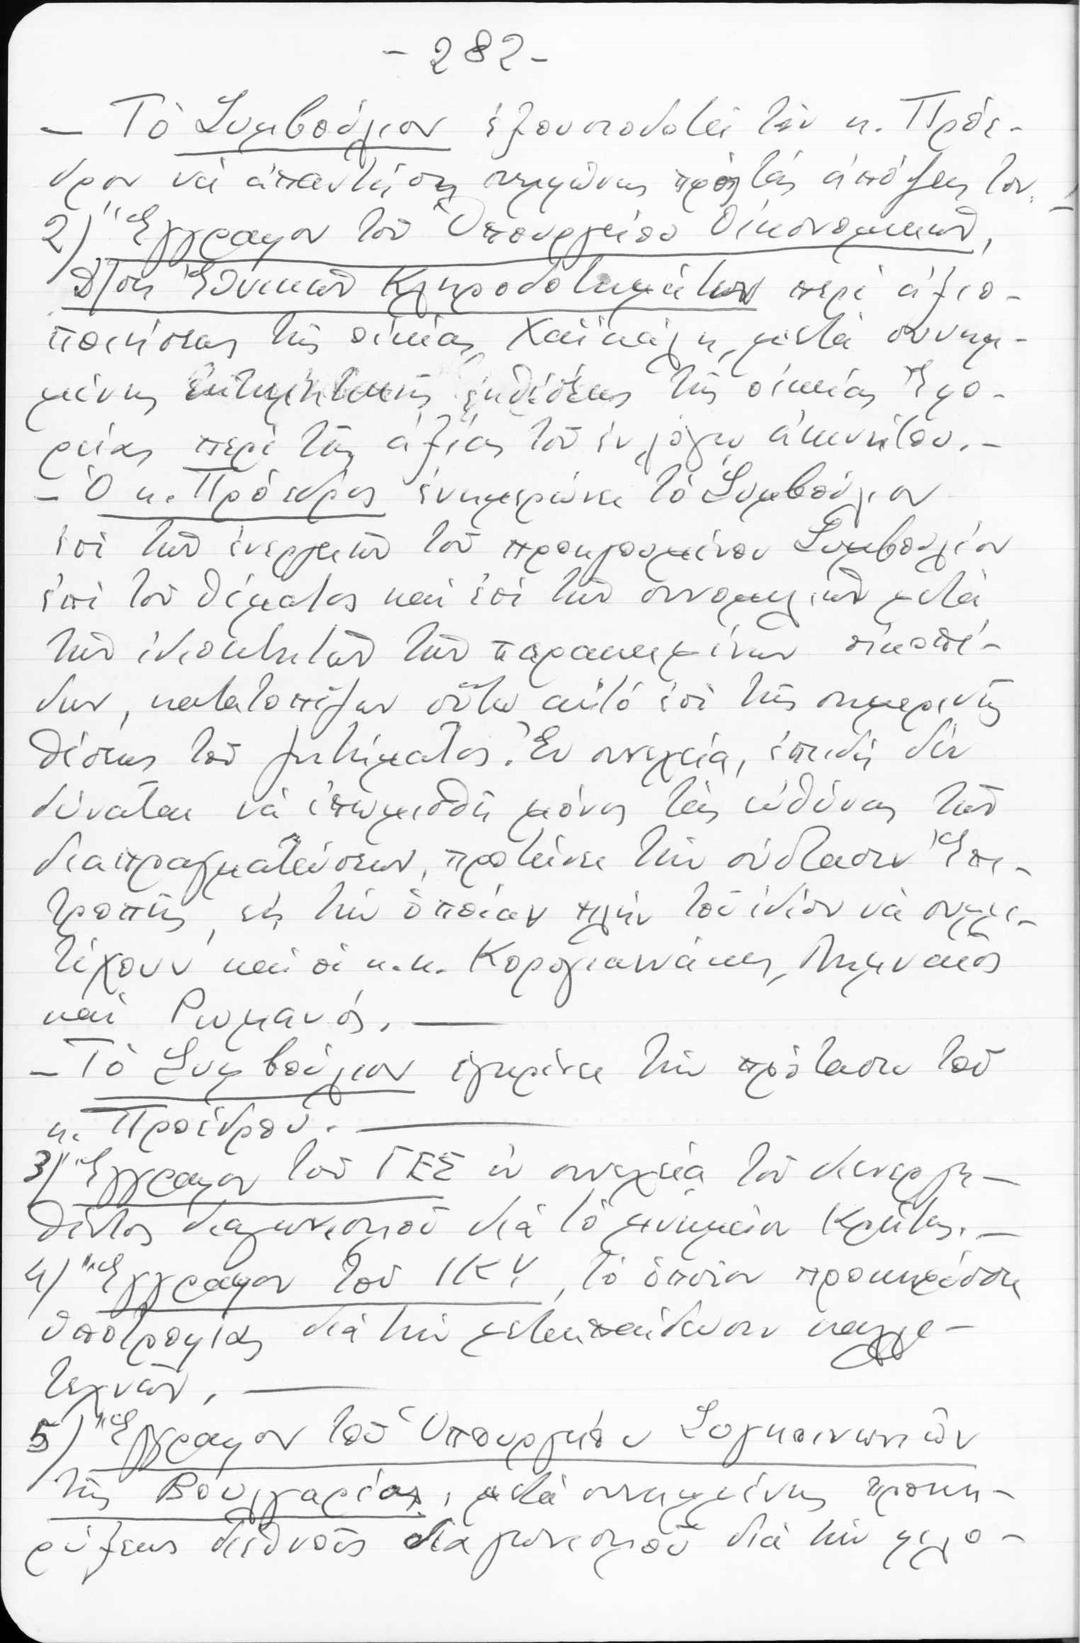 - 282 -
– Τὸ Συμβούλιον ἐξουσιοδοτεῖ τὸν κ. Πρόε-
δρον νὰ ἀπαντήσῃ συμφώνως πρὸς τὰς ἀπόψεις του.
2) Ἔγγραφον τοῦ Ὑπουργείου Οἰκονομικῶν,
Δ/σις Ἐθνικῶν Κληροδοτημάτων περὶ ἀξιο-
ποιήσεως τῆς οἰκίας Χαϊκάλη, μετὰ συνημ-
μένης ἐκτιμητικῆς ἐκθέσεως τῆς οἰκείας Ἐφο-
ρείας περὶ τῆς ἀξίας τοῦ ἐν λόγω ἀκινήτου. –
– Ὁ κ. Πρόεδρος ἐνημερώνει τὸ Συμβούλιον
ἐπὶ τῶν ἐνεργειῶν τοῦ προηγουμένου Συμβουλίου
ἐπὶ τοῦ θέματος καὶ ἐπὶ τῶν συνομιλιῶν μετὰ
τῶν ἰδιοκτητῶν τῶν παρακειμένων οἰκοπέ-
δων, κατατοπίζων οὕτω αὐτό ἐπὶ τῆς σημερινῆς
θέσεως τοῦ ζητήματος. Ἐν συνεχείᾳ, ἐπειδὴ δὲν
δύναται νὰ ἐπωμισθῆ μόνος τὰς εὐθύνας τῶν
διαπραγματεύσεων, προτείνει τὴν σύστασιν Ἐπι-
τροπῆς, εἰς τὴν ὁποίαν πλὴν τοῦ ἰδίου νὰ συμμε-
τέχουν καὶ οἱ κ.κ. Κορογιαννάκης, Λημναῖος
καὶ Ρωμανός. —
– Τὸ Συμβούλιον ἐγκρίνει τὴν πρότασιν τοῦ
κ. Προέδρου. —
3) Ἔγγραφον τοῦ ΓΕΣ ἐν συνεχείᾳ τοῦ διενεργη-
θέντος διαγωνισμοῦ διὰ τὸ μνημεῖον Κρήτης. –
4) Ἔγγραφον τοῦ ΙΚΥ, τὸ ὁποῖον προκηρύσσει
ὑποτροφίας διὰ τὴν μετεκπαίδευσιν καλλι-
τεχνῶν. —
5) Ἔγγραφον τοῦ Ὑπουργείου Συγκοινωνιῶν
τῆς Βουλγαρίας, μετὰ συνημμένης προκη-
ρύξεως διεθνοῦς διαγωνισμοῦ διὰ τὴν φιλο-